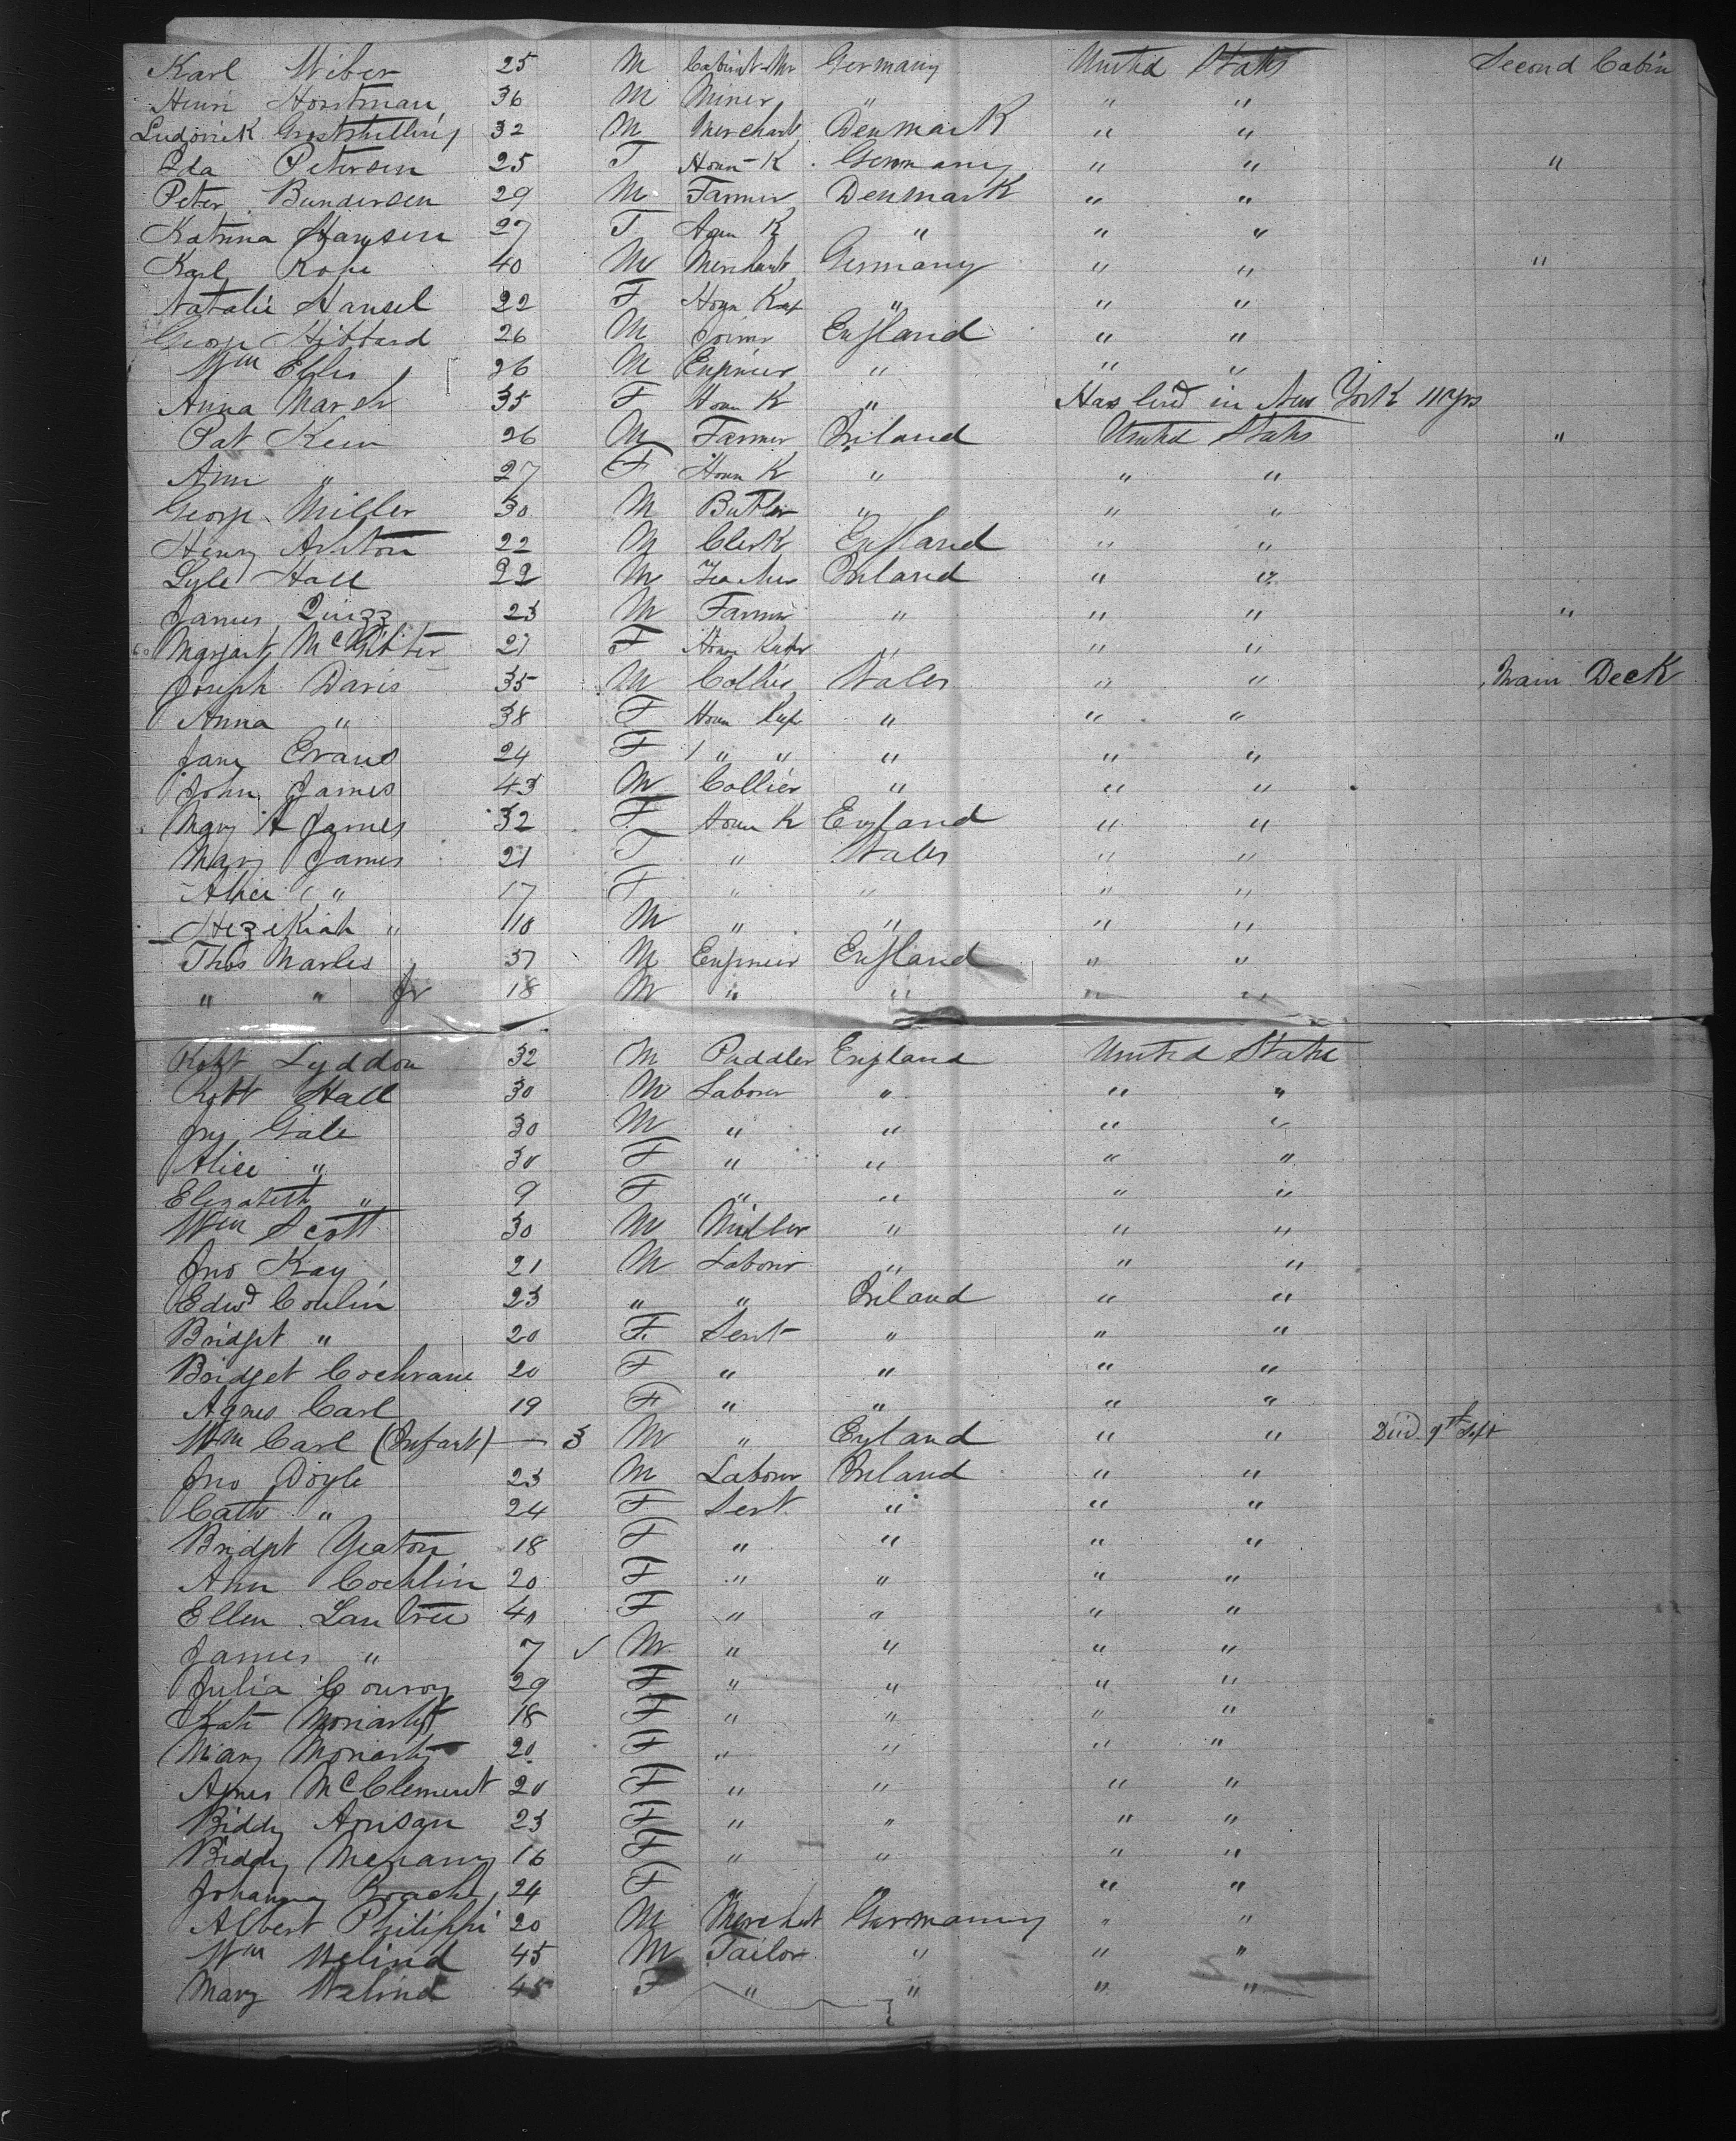 Karl Weber 25 M Cabinet Mr Germany United States Second Cabin
Henri Horstman 36 M Miner " " "
Ludovick 32 M Merchant Denmark " "
Ida Petersen 25 F House K Germany " " "
Peter Bundersen 29 M Farmer Denmark " "
Katrina Hansen 27 F House K " " "
Karl Rohe 40 M Merchant Germany " " "
Natalie Hansel 22 F House Kep " " "
George Hibbard 26 M Joiner England " "
Wm Ellis 26 M Engineer " " "
Anna Marsh 35 F House K " Has lived in New York 11 yrs
Pat Kein 26 M Farmer Ireland United States "
Ann " 27 F House K " " "
George Miller 30 M Butler " " "
Henry Ashton 22 M Clerk England " "
Lyle Hall 22 M Teacher Ireland " "
James Quizz 23 M Farmer " " " "
Margart 21 F House Keeper " " "
Joseph Davis 35 M Collier Wales " " Main Deck
Anna " 38 F House Kep " " "
Jane Evans 24 F " " " " "
John James 43 M Collier " " "
Mary A James 32 F House K England " "
Mary James 21 F " Wales " "
Alice " 17 F " " " "
Hezekiah " 10 M " " " "
Thos Marles 37 M Engineer England " "
" " Jr 18 M " " " "
Robt Lyddon 32 M Puddler England United States
Robt Hall 30 M Labour " " "
Jno Gale 30 M " " " "
Alice " 30 F " " " "
Elizabeth " 9 F " " " "
Wm Scott 30 M Miller " " "
Jno Kay 21 M Labour " " "
Edwd Conlin 23 " " Ireland " "
Bridget " 20 F Servt " " "
Bridget Cochrane 20 F " " " "
Agnes Carl 19 F " " " "
Wm Carl (Infant) — 3 M " England " " Died 9th Sept
Jno Doyle 23 M Labour Ireland " "
Cath " 24 F Servt " " "
Bridget Yeaton 18 F " " " "
Ann Cochlin 20 F " " " "
Ellen 40 F " " " "
James " 7 ✓ M " " " "
Julia Conroy 29 F " " " "
Kate Moriarty 18 F " " " "
Mary Moriarty 20 F " " " "
Agnes McClement 20 F " " " "
Biddy 23 F " " " "
Biddy 16 F " " " "
Johanna 24 F " " " "
Albert Philippi 20 M Merchat Germany " "
Wm Welind 45 M Tailor " " "
Mary Welind 45 F " " " "